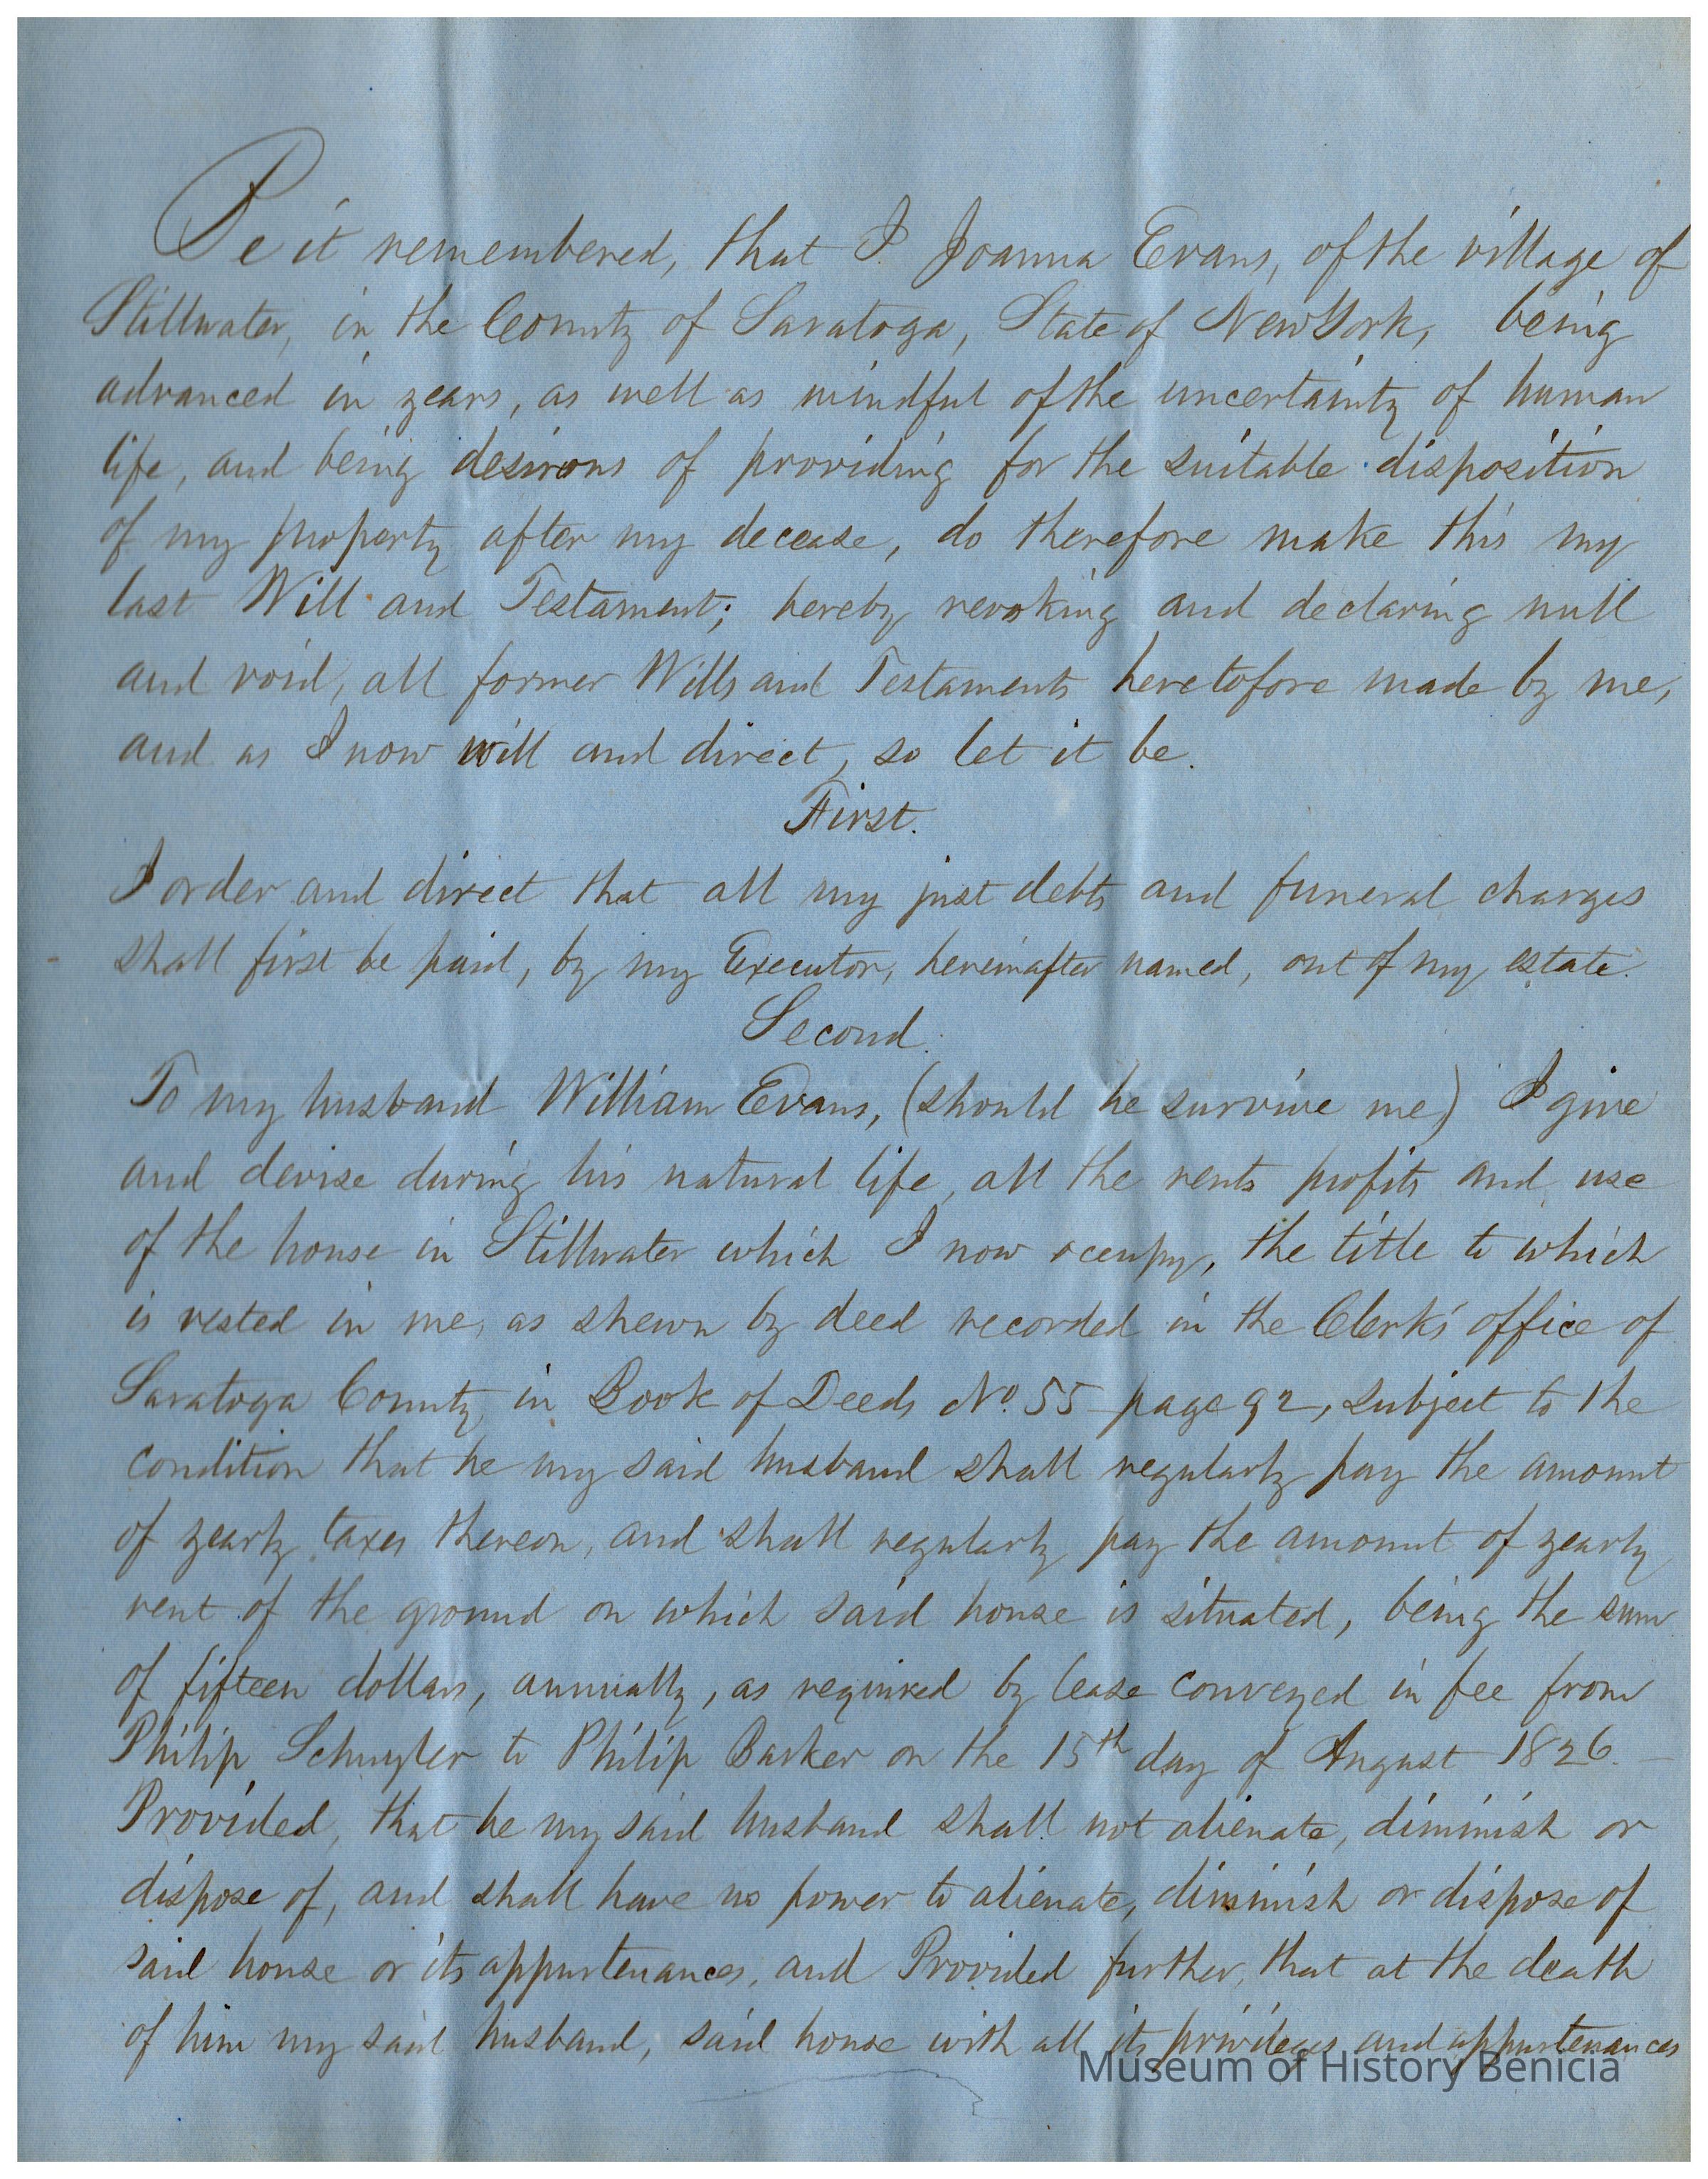 Be it remembered, that I Joanna Evans, of the village of
Stillwater, in the County of Saratoga, State of New York, being
advanced in years, as well as mindful of the uncertainty of human
life, and being desirous of providing for the suitable disposition
of my property after my decease, do therefore make this my
last Will and Testament; hereby revoking and declaring null
and void, all former Wills and Testaments heretofore made by me,
and as I now will and direct, so let it be.
First.
I order and direct that all my just debts and funeral charges
shall first be paid, by my Executor, hereinafter named, out of my estate.
Second.
To my husband William Evans, (should he survive me) I give
and devise during his natural life, all the rents profits and use
of the house in Stillwater which I now occupy, the title to which
is vested in me, as shewn by deed recorded in the Clerk's office of
Saratoga County in Book of Deeds No. 55 page 92, subject to the
condition that he my said husband shall regularly pay the amount
of yearly taxes thereon, and shall regularly pay the amount of yearly
rent of the ground on which said house is situated, being the sum
of fifteen dollars, annually, as required by lease conveyed in fee from
Philip Schuyler to Philip Barker on the 15th day of August 1826. —
Provided, that he my said husband shall not alienate, diminish or
dispose of, and shall have no power to alienate, diminish or dispose of
said house or its appurtenances, and Provided further, that at the death
of him my said husband, said house with all its privileges and appurtenances
Museum of History Benicia